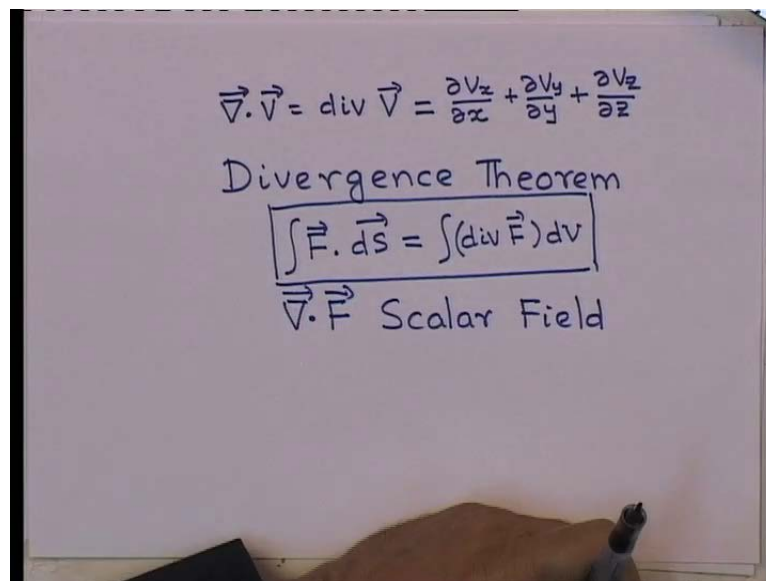 ∇⃗. V⃗ = div V⃗ = ∂Vx/∂x + ∂Vy/∂y + ∂Vz/∂z
Divergence Theorem
∫F⃗. dS⃗ = ∫(div F⃗) dV
∇⃗. F⃗ Scalar Field